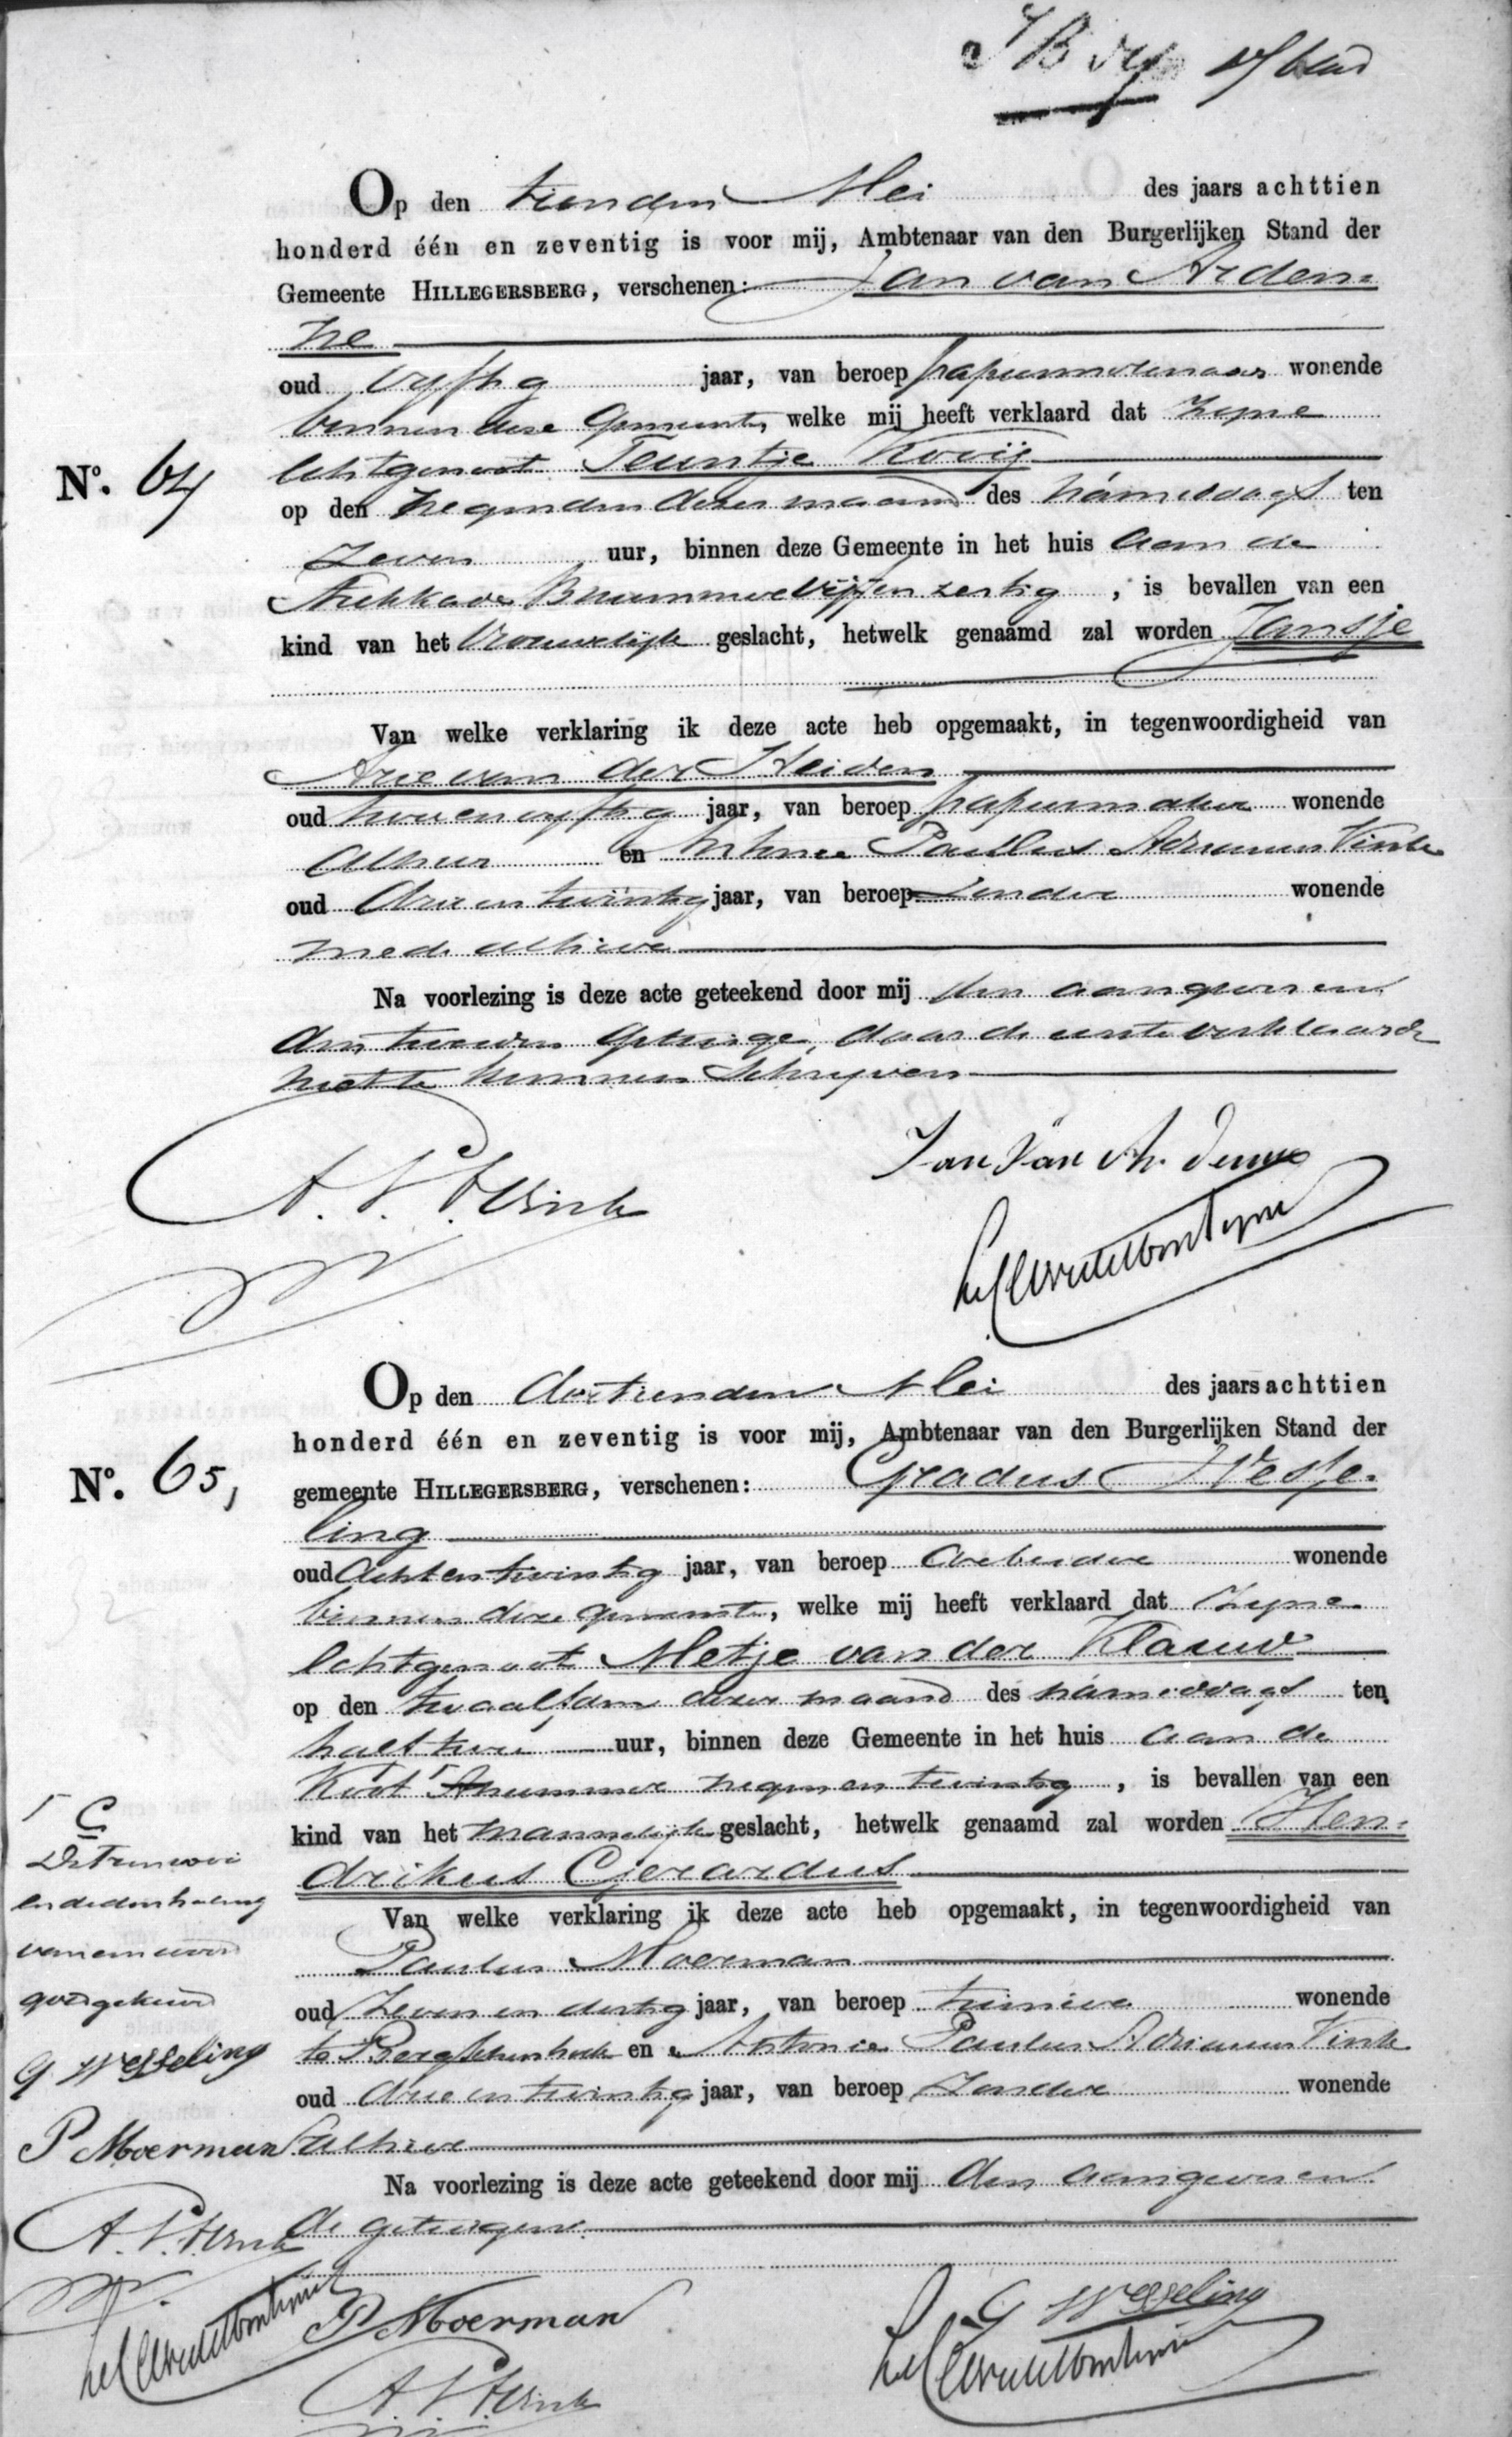 blad
Op den tienden Mei des jaars achttien
honderd één en zeventig is voor mij, Ambtenaar van den Burgerlijken Stand der
Gemeente HILLEGERSBERG, verschenen: Jan van Arden-
ne
oud vyftig jaar, van beroep papiermolenaar wonende
binnen deze Gemeente, welke mij heeft verklaard dat zyne
Nº. 64
Echtgenoot Teuntje Kooij
op den negenden dezer maand des namiddags ten
zeven uur, binnen deze Gemeente in het huis aan de
Nummer vijf en zestig, is bevallen van een
kind van het Vrouwelijk geslacht, hetwelk genaamd zal worden Jansje
Van welke verklaring ik deze acte heb opgemaakt, in tegenwoordigheid van
Arie van der Heiden
oud twee en vyftig jaar, van beroep papiermaker wonende
alhier en Antonie Paulus Adrianus Vink
oud drie en twintig jaar, van beroep Zonder wonende
mede alhier
Na voorlezing is deze acte geteekend door mij den aangever en
den tweeden getuige, daar de eerste verklaarde
niet te kunnen schryven
Jan Van Ardenne
A. P. A. Vink
Op den dertienden Mei des jaars achttien
honderd één en zeventig is voor mij, Ambtenaar van den Burgerlijken Stand der
Nº. 65,
gemeente HILLEGERSBERG, verschenen: Gradus Wesse-
ling
oud Achtentwintig jaar, van beroep arbeider wonende
binnen deze gemeente, welke mij heeft verklaard dat zyne
Echtgenoot Metje van der Klauw
op den twaalfden dezer maand des namiddags ten
half twee uur, binnen deze Gemeente in het huis aan de
nummer negen en twintig, is bevallen van een
kind van het mannelijk geslacht, hetwelk genaamd zal worden Hen-
drikus Gerardus
Van welke verklaring ik deze acte heb opgemaakt, in tegenwoordigheid van
Paulus Moerman
oud Zeven en dertig jaar, van beroep tuinier wonende
te Bergschenhoek en Antonie Paulus Adrianus Vink
oud drie en twintig jaar, van beroep Zonder wonende
alhier
Na voorlezing is deze acte geteekend door mij den aangever en
de getuigen.
van een woord
goedgekeurd
G Wesseling
P Moerman
A. P. A. Vink
G Wesseling
P Moerman
A. P. A. Vink